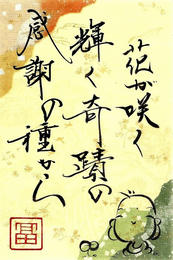 花が咲く
輝く奇蹟の
感謝の種から
冨